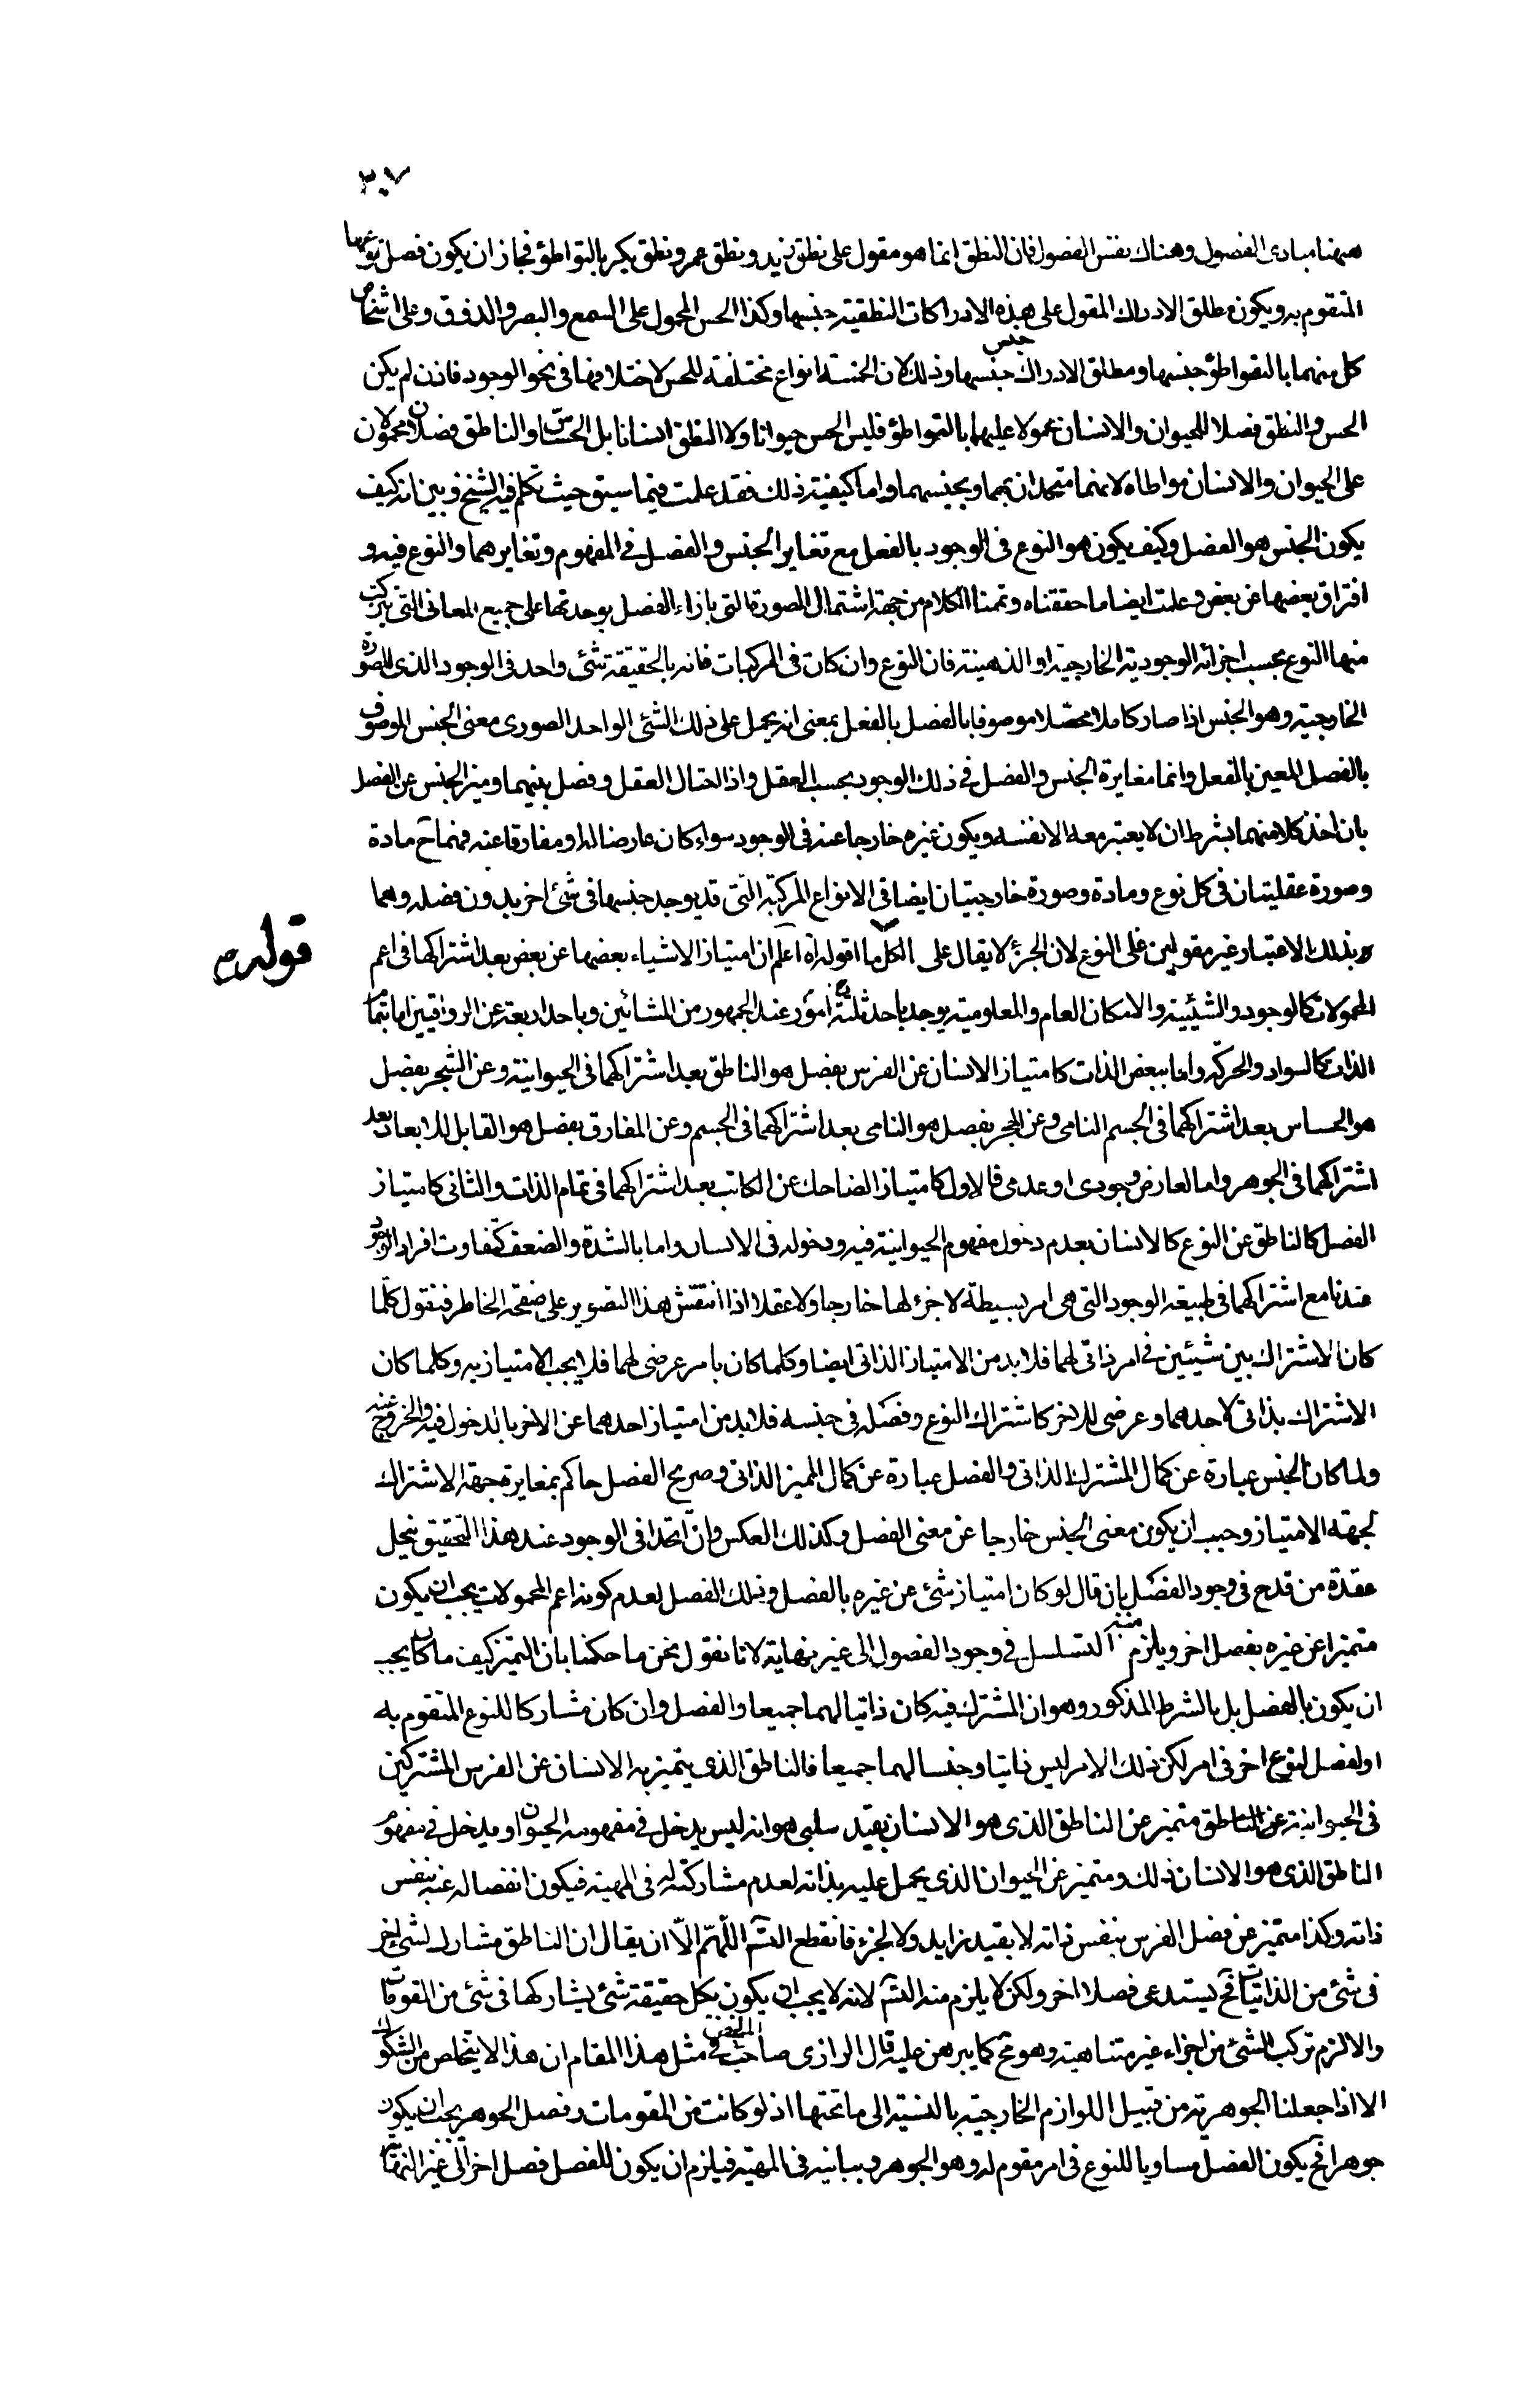 ٢٠٧
ههنا مبادى الفصول وهناك نفس الفصول فان النطق انما هو مقول على نطق زيد ونطق عمرو ونطق بكر بالتواطؤ فجاز ان يكون فصل نوعها
المتقوم به ويكون مطلق الادراك المقول على هذه الادراكات النطقية جنسها وكذا الحس المحمول على السمع والبصر والذوق وعلى اشخاص
كل منهما بالتواطؤ جنسها ومطلق الادراك جنس جنسها وذلك لان الخمسة انواع مختلفة للحس لاختلافها فى نحو الوجود فاذن لم يكن
الحس والنطق فصلا للحيوان والانسان محمولا عليهما بالتواطؤ فليس الحس حيوانا ولا النطق انسانا بل الحساس والناطق فصلان محمولان
على الحيوان والانسان مواطاة لانهما متحدان بهما وبجنسهما واما كيفية ذلك فقد علمت فيما سبق حيث تكلم فيه الشيخ وبين انه كيف
يكون الجنس هو الفصل وكيف يكون هو النوع فى الوجود بالفعل مع تغاير الجنس والفصل فى المفهوم وتغايرهما والنوع فيه و
افتراق بعضها عن بعض وعلمت ايضا ما حققناه وتممنا الكلام من جهة اشتمال الصورة التى بازاء الفصل بوحدتها على جميع المعانى التى يتركب
منها النوع بحسب اجزائه الوجودية الخارجية او الذهنية فان النوع وان كان فى المركبات فانه بالحقيقة شئ واحد فى الوجود الذى للصورة
الخارجية وهو الجنس اذا صار كاملا محصّلا موصوفا بالفصل بالفعل بمعنى انه يحمل على ذلك الشئ الواحد الصورى معنى الجنس الموصوف
بالفصل المعين بالفعل وانما مغايرة الجنس والفصل فى ذلك الوجود بحسب العقل واذا احتال العقل وفصل بينهما وميز الجنس عن الفصل
بان اخذ كلا منهما بشرط ان لا يعتبر معه الا نفسه ويكون غيره خارجا عنه فى الوجود سواء كان عارضا له او مفارقا عنه فهما ح مادة
وصورة عقليتان فى كل نوع ومادة وصورة خارجيتان ايضا فى الانواع المركبة التى قد يوجد جنسها فى شئ اخر بدون فصله وهما
وبذلك الاعتبار غير مقولين على النوع لان الجزء لا يقال على الكل
قوله
ما اقوله آه اعلم ان امتياز الاشياء بعضها عن بعض بعد اشتراكها فى اعم
المحمولات كالوجود والشيئية والامكان العام والمعلومية يوجد باحد ثلثة امور عند الجمهور من المشائين وباحد اربعة عن الرواقيين اما بتمام
الذات كالسواد والحركة واما ببعض الذات كامتياز الانسان عن الفرس بفصل هو الناطق بعد اشتراكهما فى الحيوانية وعن الشجر بفصل
هو الحساس بعد اشتراكهما فى الجسم النامى وعن الحجر بفصل هو النامى بعد اشتراكهما فى الجسم وعن المفارق بفصل هو القابل للابعاد بعد
اشتراكهما فى الجوهر واما لعارض وجودى او عدمى فالاول كامتياز الضاحك عن الكاتب بعد اشتراكهما فى تمام الذات والثانى كامتياز
الفصل كالناطق عن النوع كالانسان بعدم دخول مفهوم الحيوانية فيه ودخوله فى الانسان واما بالشدة والضعف كتفاوت افراد الوجود
عندنا مع اشتراكهما فى طبيعة الوجود التى هى امر بسيطة لا جزء لها خارجا ولا عقلا اذا انتقش هذا التصوير على صفحة الخاطر فنقول كلّما
كان الاشتراك بين شيئين فى امر ذاتى لهما فلا بد من الامتياز الذاتى ايضا وكلما كان بامر عرضى لهما فلا يجب الامتياز به وكلما كان
الاشتراك بذاتى لاحدهما وعرضى للاخر كاشتراك النوع وفصله فى جنسه فلا بد من امتياز احدهما عن الاخر بالدخول فيه والخروج عنه
ولما كان الجنس عبارة عن كمال المشترك الذاتى والفصل عبارة عن كمال المميز الذاتى وصريح الفصل حاكم بمغايرة جهة الاشتراك
لجهة الامتياز وجب ان يكون معنى الجنس خارجا عن معنى الفصل وكذلك العكس وان اتحدا فى الوجود عند هذا التحقيق ينحل
عقدة من قدح فى وجود الفصل بان قال لو كان امتياز شئ عن غيره بالفصل وذلك الفصل لعدم كونه اعم المحمولات يجب ان يكون
متميزا عن غيره بفصل اخر ويلزم منه التسلسل فى وجود الفصول الى غير نهاية لانا نقول نحن ما حكمنا بان التميز كيف ما كان يجب
ان يكون بالفصل بل بالشرط المذكور وهو ان المشترك فيه كان ذاتيا لهما جميعا والفصل وان كان مشاركا للنوع المتقوم به
او لفصل لنوع اخر فى امر لكن ذلك الامر ليس ذاتيا وجنسا لهما جميعا فالناطق الذى يتميز به الانسان عن الفرس المشتركين
فى الحيوانية عن الناطق متميز عن الناطق الذى هو الانسان بقيد سلبى هو انه ليس يدخل فى مفهومه الحيوان او يدخل فى مفهوم
الناطق الذى هو الانسان ذلك ومتميز عن الحيوان الذى يحمل عليه بذاته لعدم مشاركته له فى المهية فيكون انفصاله عنه بنفس
ذاته وكذا متميز عن فصل الفرس بنفس ذاته لا بقيد زايد ولا لجزء فانقطع التسّ اللّهمّ الّا ان يقال ان الناطق مشارك لشئ اخر
فى شئ من الذاتيات فح يستدعى فصلا اخر ولكن لا يلزم منه التسّ لانه لا يجب ان يكون بكل حقيقة شئ يشاركها فى شئ من المقومات
والا لزم تركب الشئ من اجزاء غير متناهية وهو مح كما يبرهن عليه قال الرازى صاحب الملخص فى مثل هذا المقام ان هذا لا يتخلص من الشكوك
الا اذا جعلنا الجوهرية من قبيل اللوازم الخارجية بالنسبة الى ما تحتها اذ لو كانت من المقومات وفصل الجوهر يجب ان يكون
جوهرا فح يكون الفصل مساويا للنوع فى امر مقوم له وهو الجوهر ويباينه فى المهية فيلزم ان يكون للفصل فصل اخر الى غير النهاية